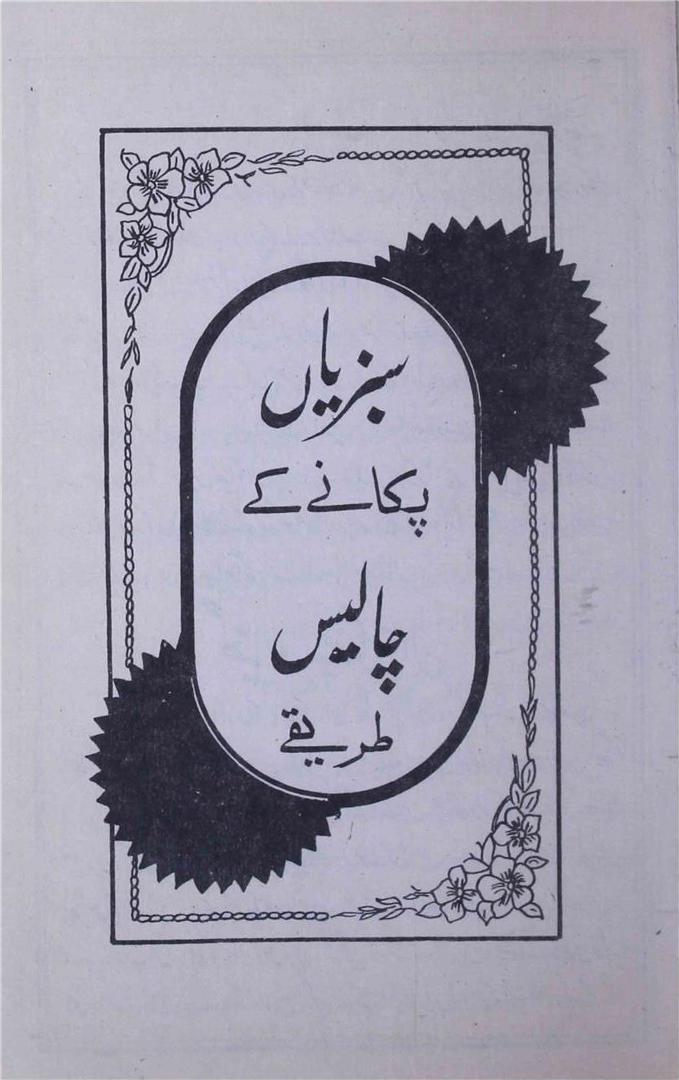 سبزیاں
پکانے کے
چالیس
طریقے